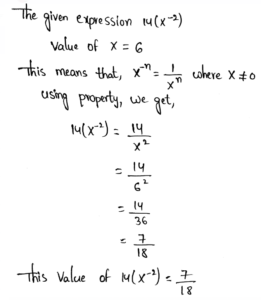 The given expression 14(x⁻²)
Value of x = 6
This means that, x⁻ⁿ = 1/xⁿ where x ≠ 0
using property, we get,
14(x⁻²) = 14/x²
= 14/6²
= 14/36
= 7/18
This Value of 14(x⁻²) = 7/18